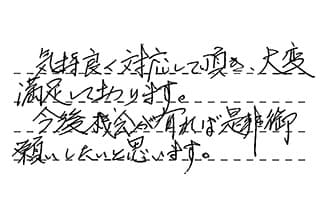 気持良く対応して頂き、大変
満足しております。
今後機会が有れば是非御
願いしたいと思います。